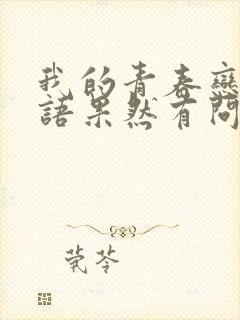 我的青春戀
語果然有問
莞苓